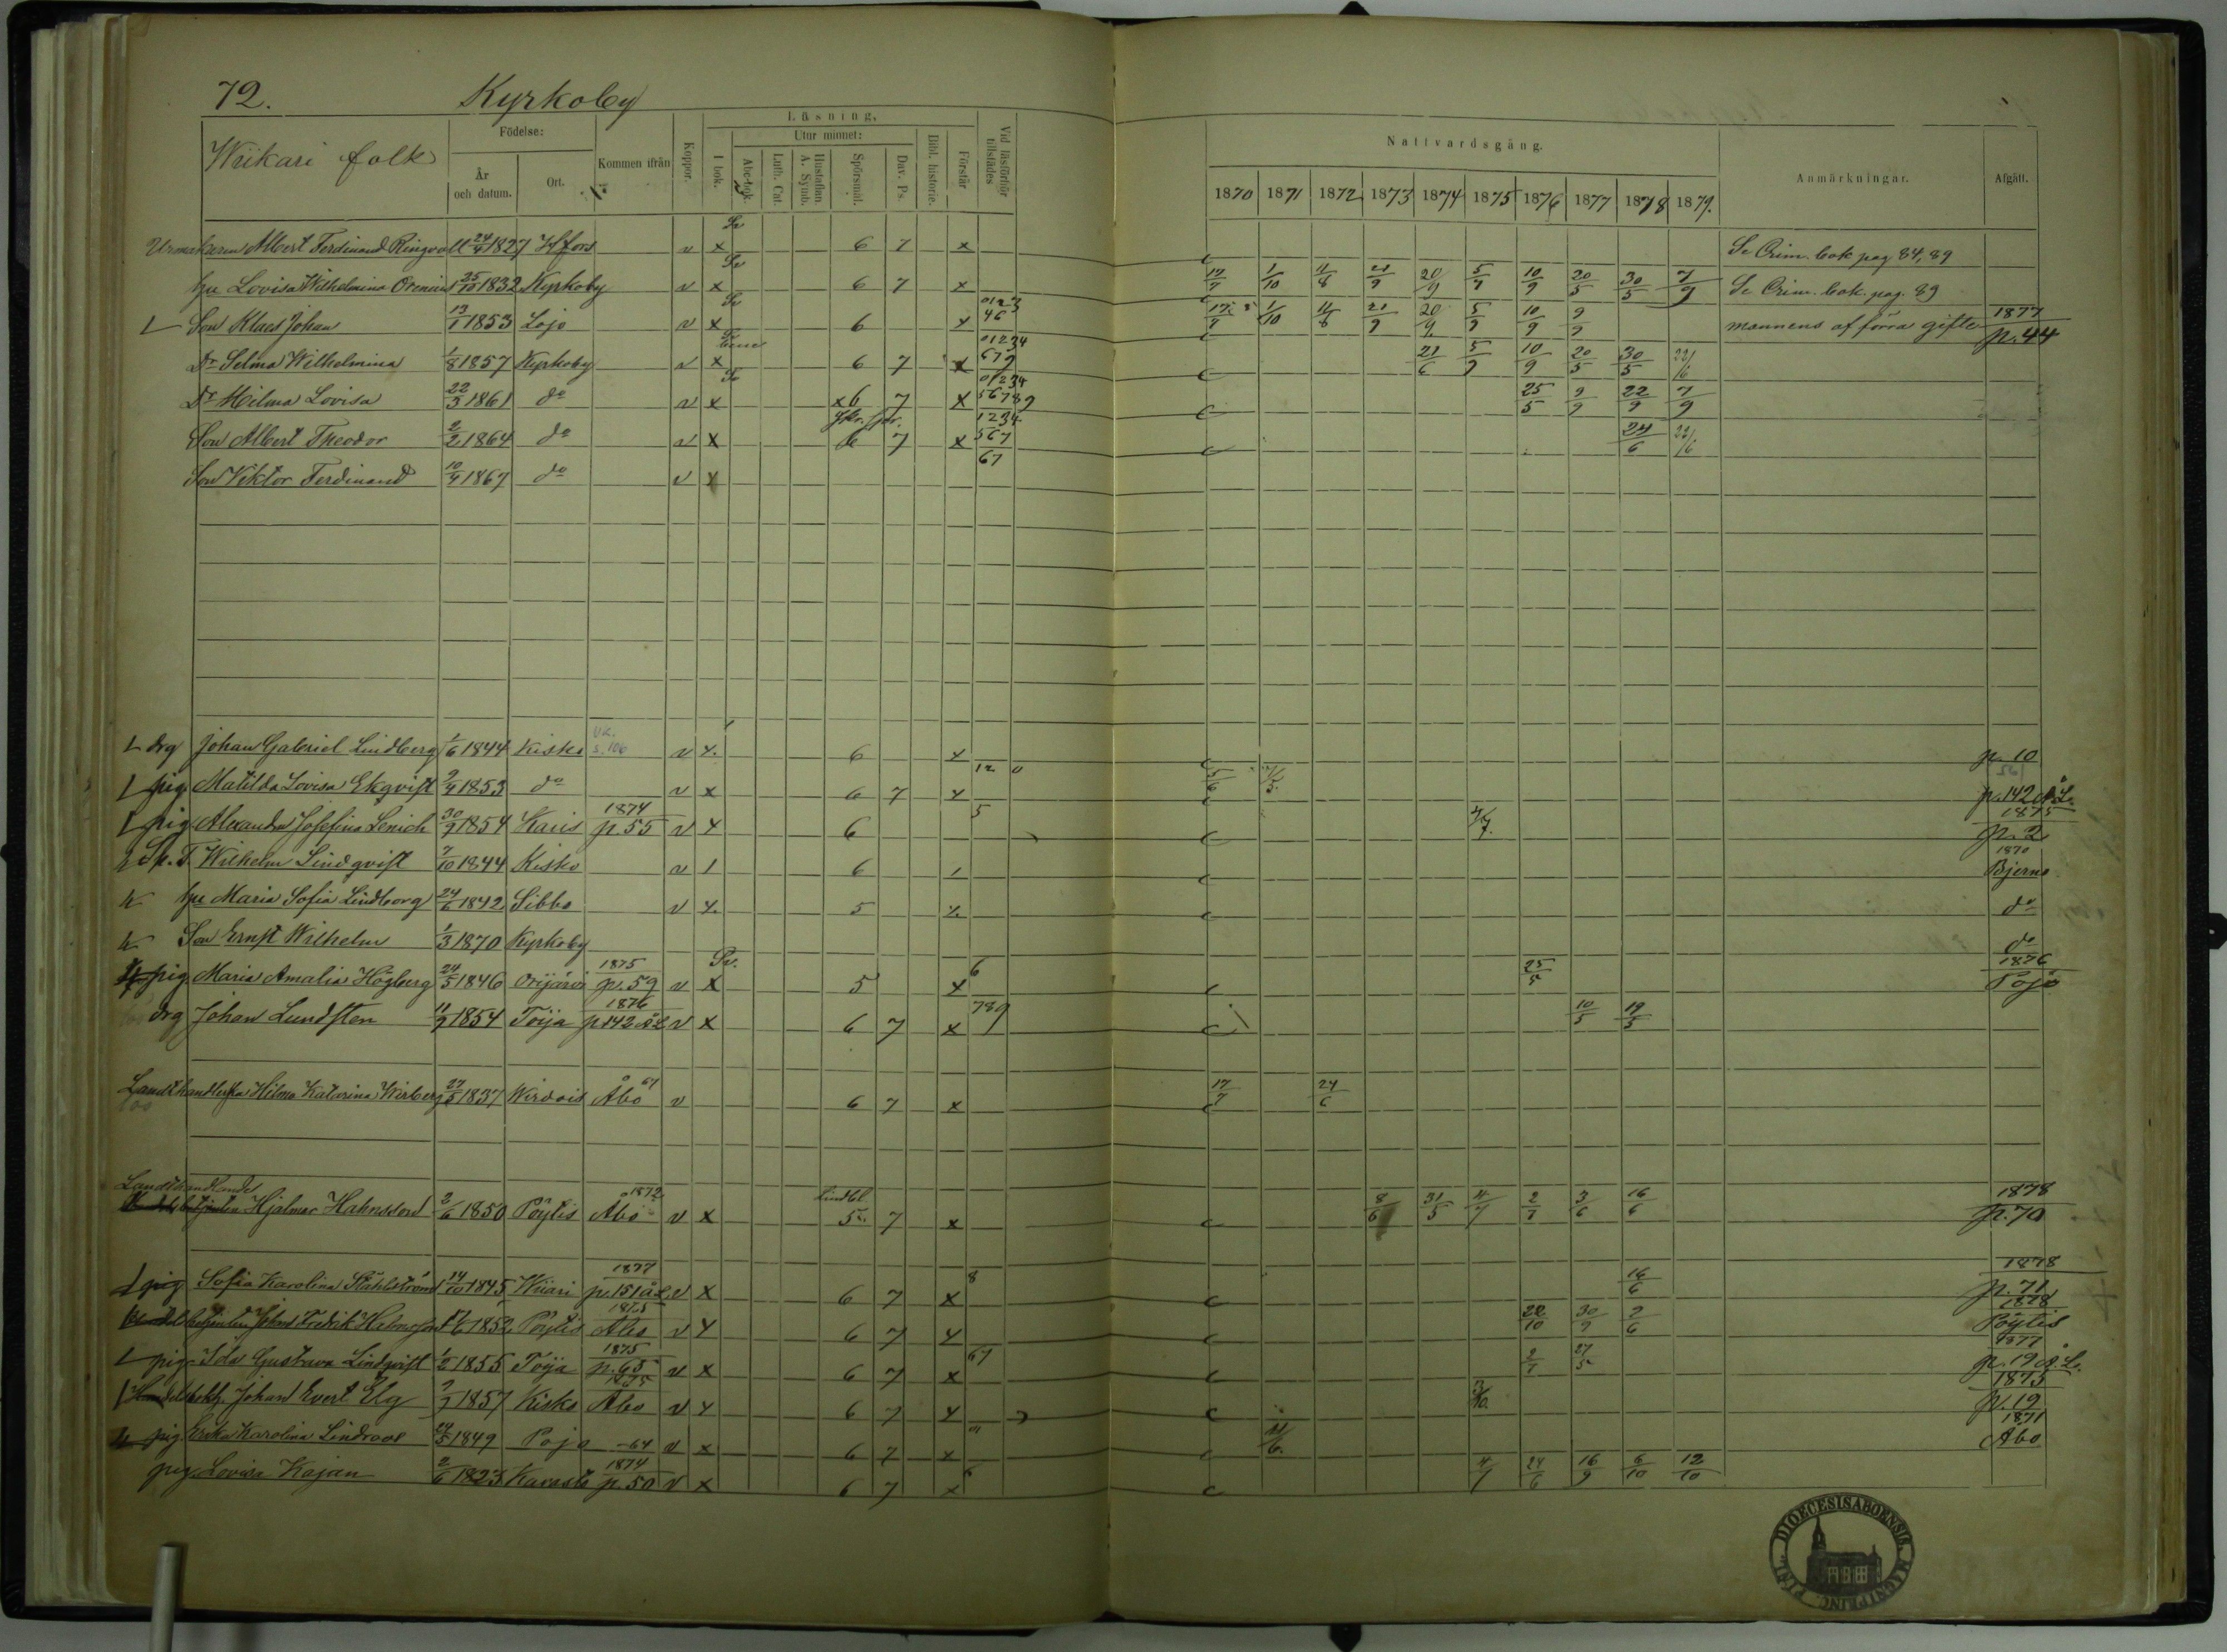 72. Kyrkoby
Wiikari folk
Födelse:
År och datum.
Ort.
Kommen ifrån
Koppor.
Läsning.
I bok.
Utur minnet:
Abc-bok.
Luth. Cat.
Hustaflan. A. Symb.
Spörsmål.
Dav. Ps.
Bibl. historie.
Förstår
Vid läsförhör tillstädes
Nattvardsgång.
1870 1871 1872 1873 1874 1875 1876 1877 1878 1879.
Anmärkningar.
Afgått.
Urmakaren Albert Ferdinand Ringvall 24/4 1827 Hfors v x 6 7 x Se Crim. bok pag 84, 89
hu Lovisa Wilhelmina 25/10 1832 Kyrkoby v x 6 7 x 1/10 11/8 21/9 20/9 5/9 10/9 20/5 30/5 7/9 Se Crim. bok. pag. 89
Son Klaes Johan 13/1 1853 Lojo v x 6 x 0123 46 1/10 11/8 21/9 20/9 5/9 10/9 9/9 mannens af förra gifte 1877 p. 44
Dr Selma Wilhelmina 1/8 1857 Kyrkoby v x 6 7 x 01234 679 21/6 5/9 10/9 20/5 30/5 22/6
Dr Hilma Lovisa 22/3 1861 do v x x6 7 x 01234 56789 25/5 9/9 22/9 7/9
Son Albert Theodor 2/2 1864 do v x 6 7 x 1234 567 24/6 22/6
Son Viktor Ferdinand 10/9 1867 do v x 67
drg Johan Gabriel Lindberg 1/6 1844 Kisko s. 106 v x. 6 x p. 10
pig Matilda Lovisa Ekqvist 2/4 1853 do v x 6 7 x 12 0 5/6 p. 142 Å.L.
pig Alexandra Josefina Lenich 30/9 1854 Karis 1874 p. 55 v x 6 5 4/7. 1875 p. 2
Wilhelm Lindqvist 7/10 1844 Kisko v 1 6 1870 Bjerno
hu Maria Sofia Lindborg 24/6 1842 Sibbo v x. 5 x. do
Son Ernst Wilhelm 1/3 1870 Kyrkoby do
pig Maria Amalia Högberg 24/5 1846 Orijärvi 1875 p. 59 v x Sv. 5 x 6 25/5 1876 Pojo
drg Johan Lundsten 11/9 1854 Toija 1876 p 142 Å.L v x 6 7 x 789 10/5 19/5
Landthandlerska Hilma Katarina Wirberg 27/5 1837 Wirdois Åbo 61 v 6 7 x 17/7 24/6
Landthandlandel
betjenten Hjalmar Hahnsson 2/6 1850 Pöytis Åbo 1872 v x Lindbl. 5 7 x 8/6 31/5 4/7 2/7 3/6 16/6 1878 p. 70
pig Sofia Karolina Ståhlström 14/10 1845 Wiiari 1877 p. 151 ÅL v x 6 7 x 8 16/6 1878 p. 71
betjenten Johan Fredrik 1852 Pöytis 1875 Åbo v x 6 7 x 22/10 30/9 2/6 1878 Pöytis
pig Ida Gustava Lindqvist 1/2 1855 Toija 1875 p. 65 v x 6 7 x 67 2/7 27/5 1877 p. 19 Å.L.
Johan Evert Elg 2/7 1857 Kisko 1875 Åbo v x 6 7 x 1875 p. 19
pig Erika Karolina Lindroos 24/5 1849 Pojo -64 v x 6 7 x 1871 Åbo
pig Lovisa Kajan 2/6 1823 Karasto 1874 p. 50 v x 6 7 x 6 4/7 24/6 16/9 6/10 12/10
DIOECESIS ABOENSIS. MAGNI PRINC. FINL.